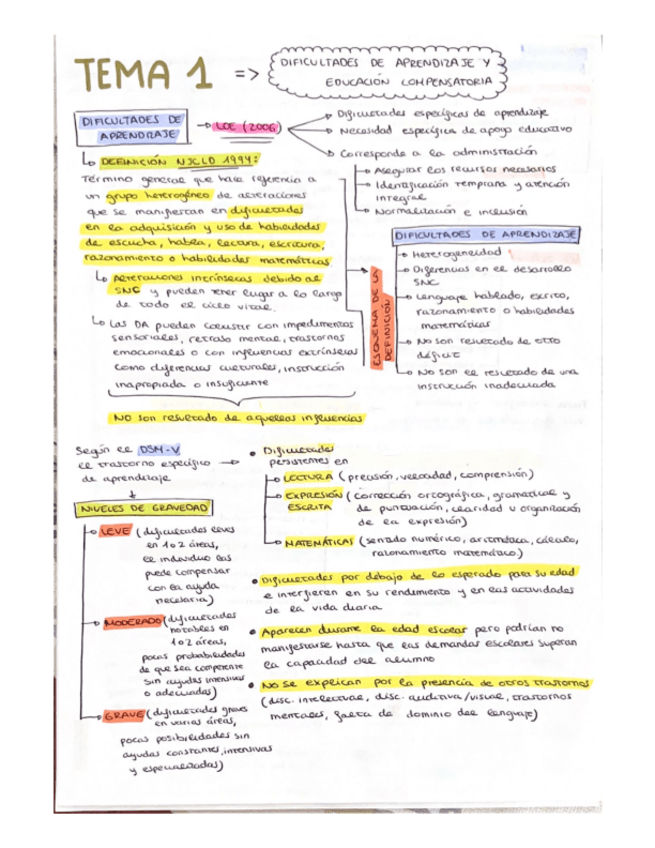 TEMA 1 =>
DIFICULTADES DE APRENDIZAJE Y
EDUCACIÓN COMPENSATORIA
DIFICULTADES DE
APRENDIZAJE
LOE (2006)
Dificultades específicas de aprendizaje
Necesidad específica de apoyo educativo
Corresponde a la administración
Asegurar los recursos necesarios
Identificación temprana y atención
integral
Normalización e inclusión
DEFINICIÓN NJCLD 1994:
Término general que hace referencia a
un grupo heterogéneo de alteraciones
que se manifiestan en dificultades
en la adquisición y uso de habilidades
de escucha, habla, lectura, escritura,
razonamiento o habilidades matemáticas
Alteraciones intrínsecas debido al
SNC y pueden tener lugar a lo largo
de todo el ciclo vital.
Las DA pueden coexistir con impedimentos
sensoriales, retraso mental, trastornos
emocionales o con influencias extrínsecas
como diferencias culturales, instrucción
inapropiada o insuficiente
NO son resultado de aquellas influencias
ESQUEMA DE LA
DEFINICIÓN
DIFICULTADES DE APRENDIZAJE
Heterogeneidad
Diferencias en el desarrollo
SNC
Lenguaje hablado, escrito,
razonamiento o habilidades
matemáticas
No son resultado de otro
déficit
No son el resultado de una
instrucción inadecuada
Según el DSM-V
el trastorno específico
de aprendizaje
NIVELES DE GRAVEDAD
LEVE (dificultades leves
en 1 o 2 áreas,
el individuo las
puede compensar
con la ayuda
necesaria)
MODERADO (dificultades
notables en
1 o 2 áreas,
pocas probabilidades
de que sea competente
sin ayudas intensivas
o adecuadas)
GRAVE (dificultades graves
en varias áreas,
pocas posibilidades sin
ayudas constantes, intensivas
y especializadas)
Dificultades
persistentes en
LECTURA (precisión, velocidad, comprensión)
EXPRESIÓN (corrección ortográfica, gramatical y
ESCRITA de puntuación, claridad u organización
de la expresión)
MATEMÁTICAS (sentido numérico, aritmética, cálculo,
razonamiento matemático)
Dificultades por debajo de lo esperado para su edad
e interfieren en su rendimiento y en las actividades
de la vida diaria
Aparecen durante la edad escolar pero podrían no
manifestarse hasta que las demandas escolares superan
la capacidad del alumno
No se explican por la presencia de otros trastornos
(disc. intelectual, disc. auditiva/visual, trastornos
mentales, falta de dominio del lenguaje)